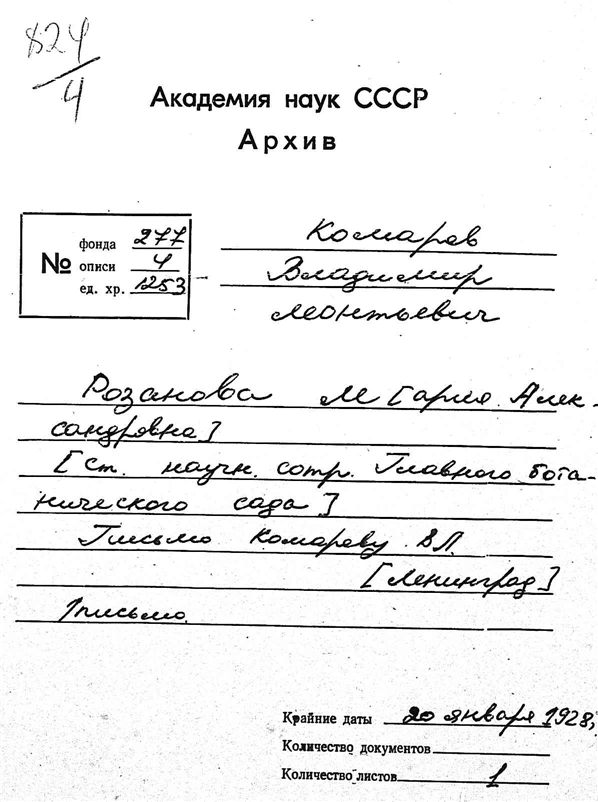 824
4
Академия наук СССР
Архив
№
фонда 277
описи 4
ед. хр. 1253
Комаров
Владимир
Леонтьевич
Розанова М [ария Алек-
сандровна]
[ст. научн. сотр. Главного бота-
нического сада]
Письмо Комарову В.Л.
[Ленинград]
1 письмо.
Крайние даты 20 января 1928,
Количество документов
Количество листов 1